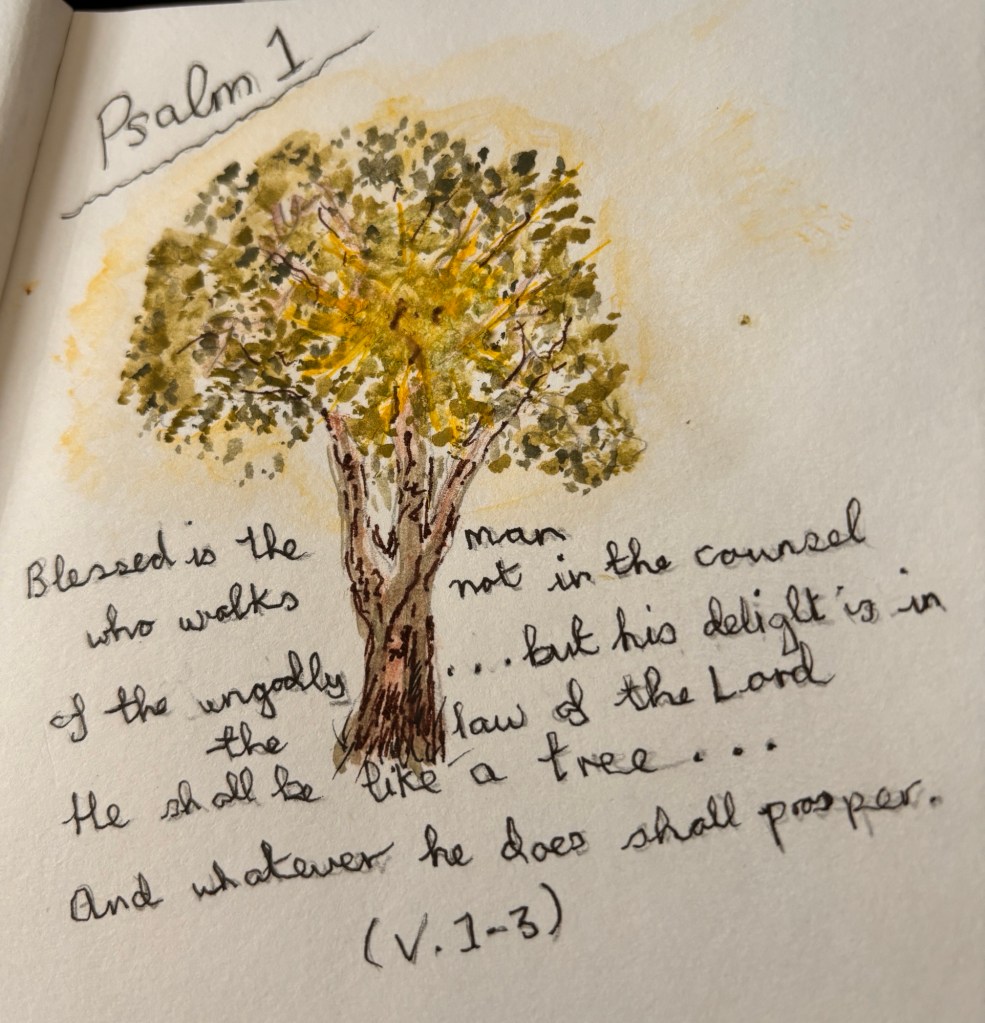 Psalm 1
Blessed is the man
who walks not in the counsel
of the ungodly ... but his delight is in
the law of the Lord
He shall be like a tree ...
And whatever he does shall prosper.
(V. 1-3)